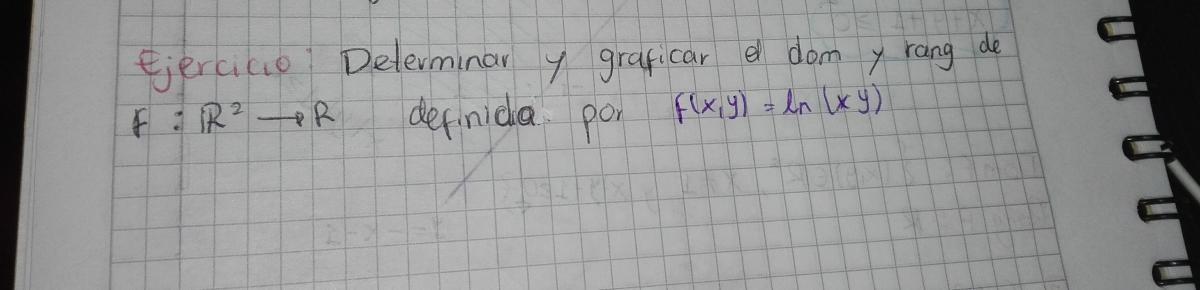 Ejercicio: Determinar y graficar el dom y rang de
F : ℝ² → ℝ definida por f(x,y) = ln (xy)